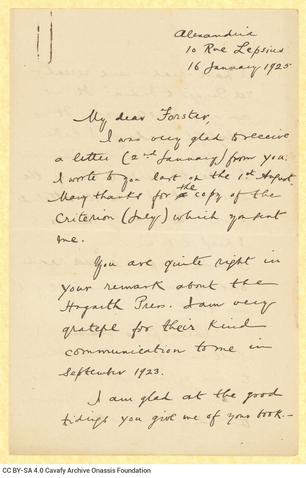 Alexandria
10 Rue Lepsius
16 January 1925
My dear Forster,
I was very glad to receive
a letter (2nd January) from you.
I wrote to you last on the 1st August.
Many thanks for the copy of the
Criterion (July) which you sent
me.
You are quite right in
your remark about the
Hogarth Press. I am very
grateful for their kind
communication to me in
September 1923.
I am glad at the good
tidings you give me of your book.—
CC BY-SA 4.0 Cavafy Archive Onassis Foundation